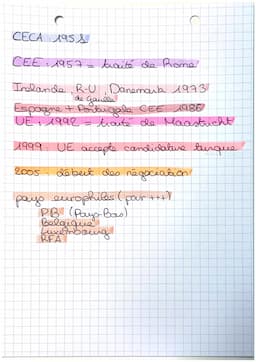 CECA 195
CEE : 1957 = traité de Rome
Irlande, R-U, Danemark 1973
de Gaulle
Espagne + Portugale CEE 1986
UE : 1992 = traité de Maastricht
1999 UE accepte candidature turque
2005 début des négociation
pays europhiles (pour +++)
PB (Pays-Bas)
Belgique
Luxembourg
RFA